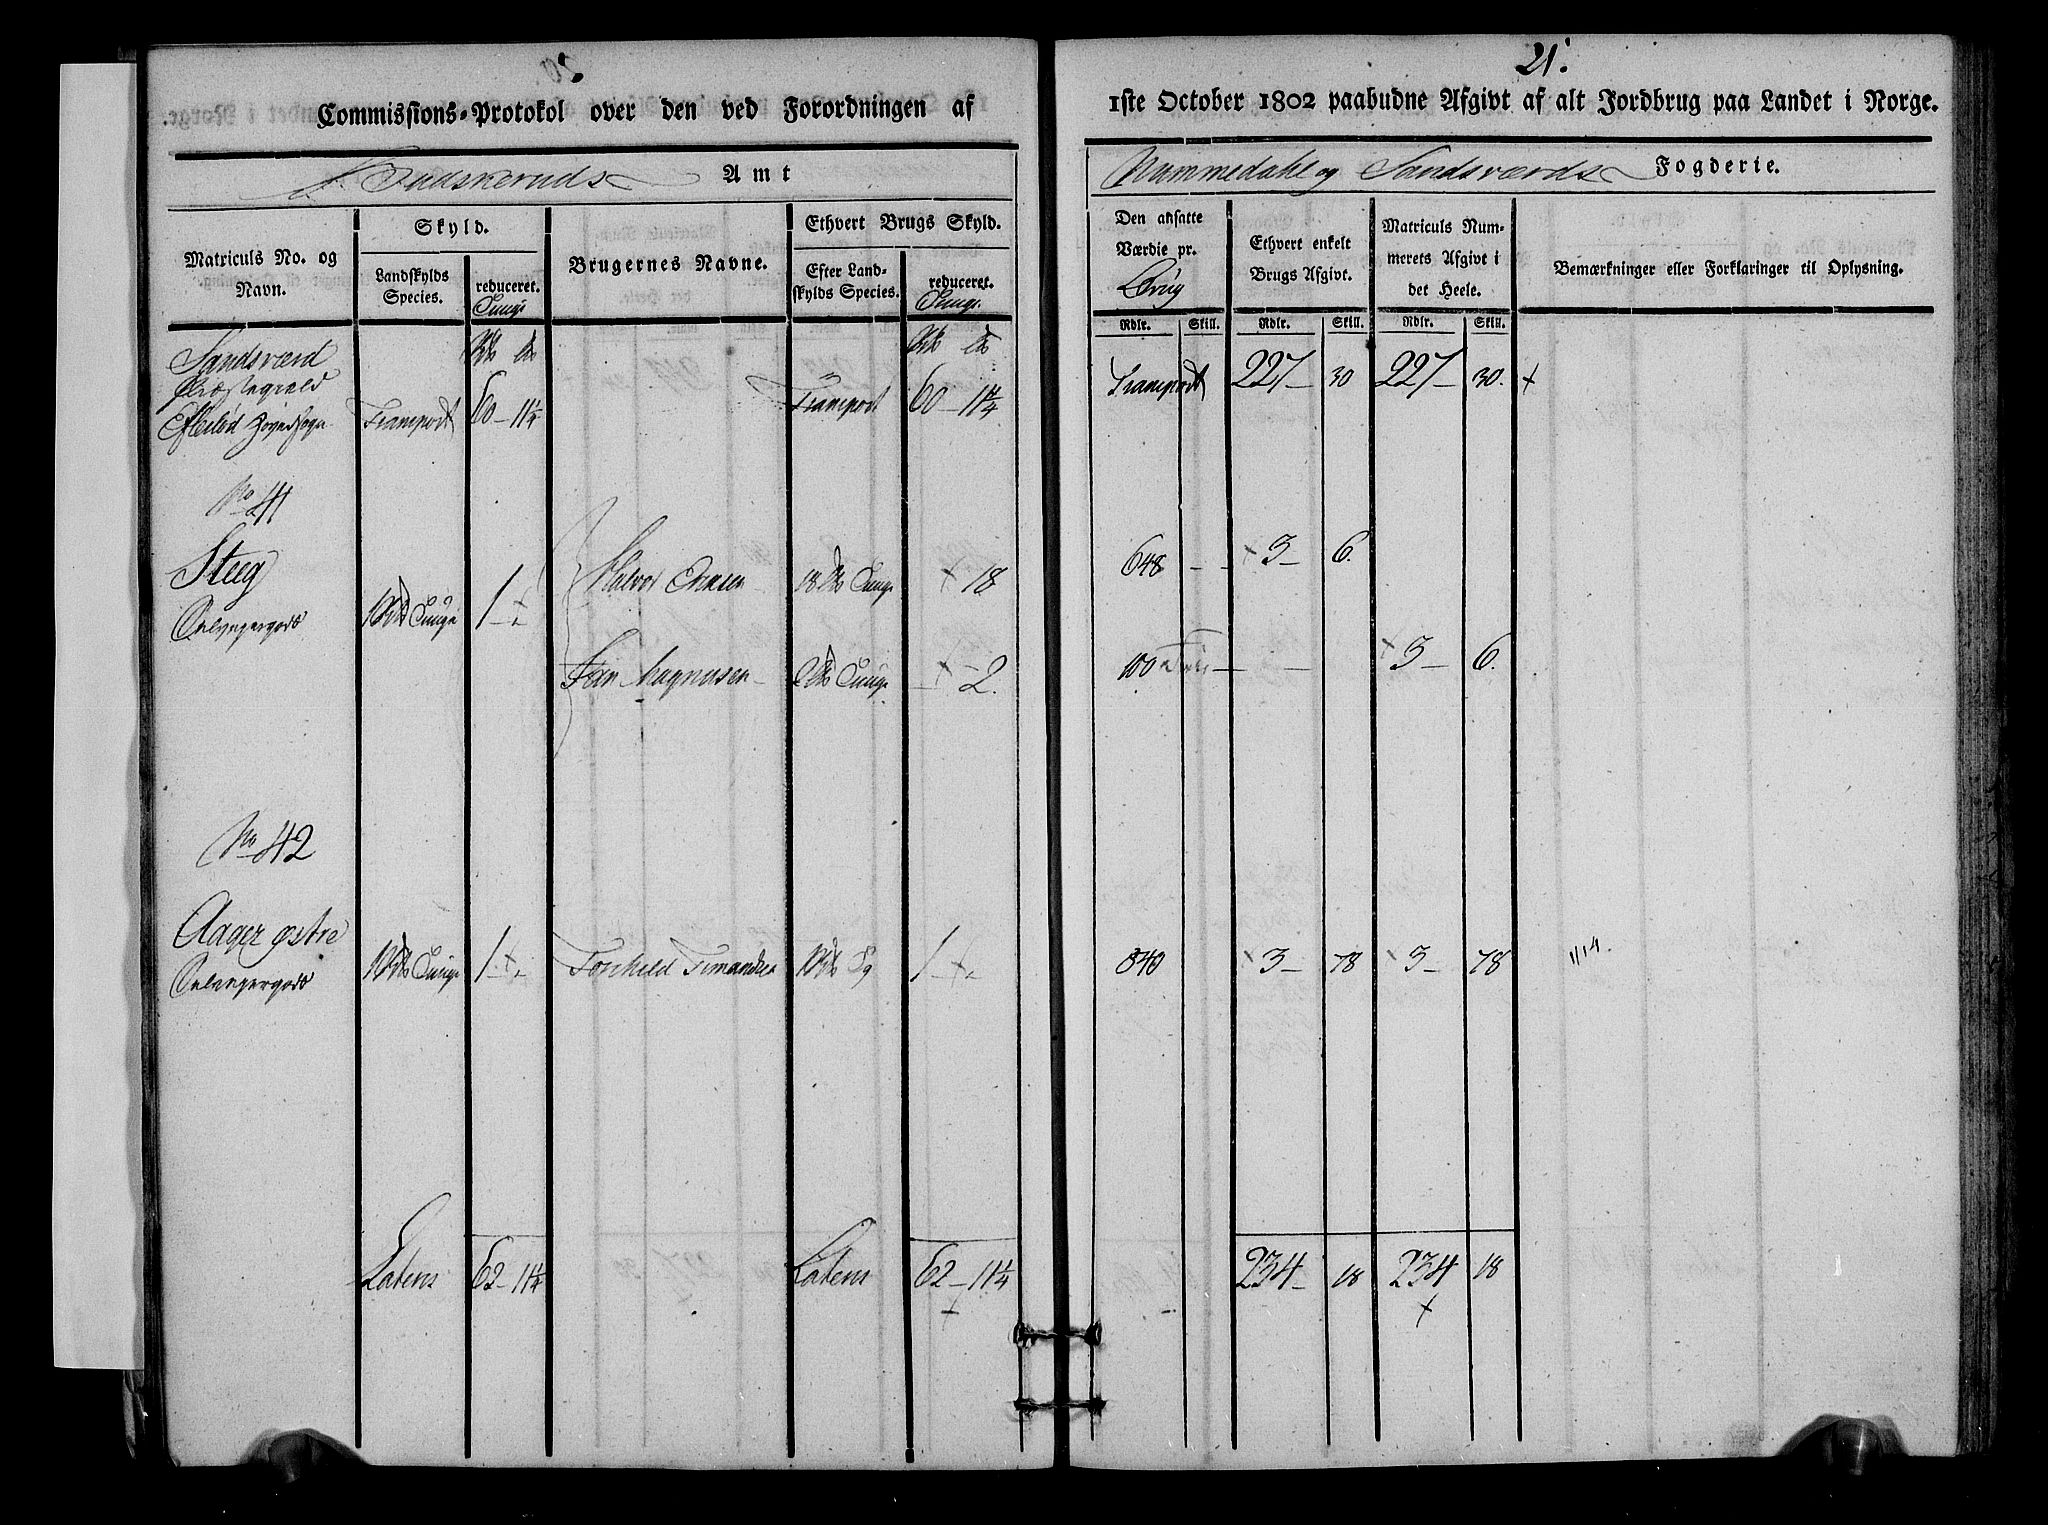 21.
Commissions-Protokol over den ved Forordningen af
1ste October 1802 paabudne Afgivt af alt Jordbrug paa Landet i Norge.
Budskeruds Amt
Nummedahl og Sandsværds Fogderie.
Matriculs No. og Navn.
Skyld.
Landskylds Species.
reduceret. Tunge
Brugernes Navne.
Ethvert Brugs Skyld.
Efter Landskylds Species.
reduceret. Tunge
Den ansatte Værdie pr. Brug
Ethvert enkelt Brugs Afgivt.
Matriculs Nummerets Afgivt i det Heele.
Bemærkninger eller Forklaringer til Oplysning.
Rdlr. Skill. Rdlr. Skill. Rdlr. Skill.
Sandsværd
Præstegield
Eftelød Hovedsogn Transport 60 - 11¼ Transport 60 - 11¼ Transport 227 - 30 227 - 30.
No 41
Steeg Halvor 18 Tunge 18 648 - - 3 - 6.
Selveyergods Tunge 1 -
Magnusen 2 Tunge 2. 100 - - 3 - 6.
No 42
Aager østre
Selveyergods Tunge 1 - Torkild 1 - 840 3 - 78 3 - 78 1/14.
Latens 62 - 11¼ Latens 62 - 11¼ 234 - 18 234 18